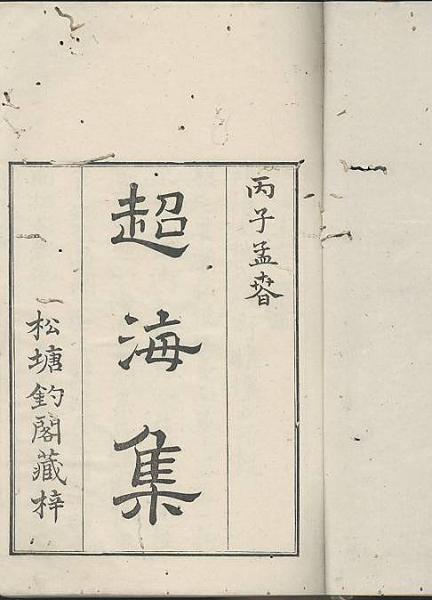 丙子孟萅
超海集
松塘釣閣藏梓